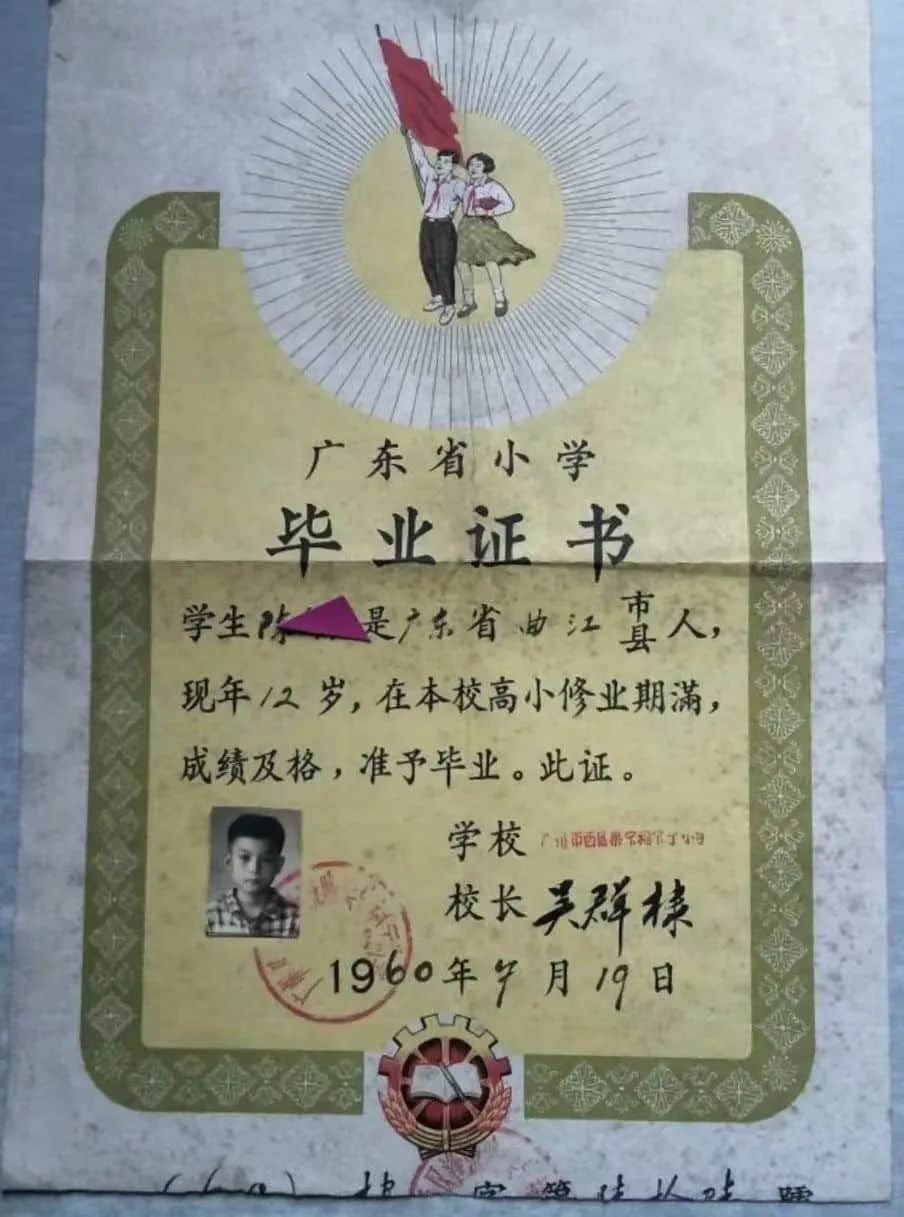 广东省小学
毕业证书
学生陈 是广东省曲江市县人，
现年12岁，在本校高小修业期满，
成绩及格，准予毕业。此证。
学校 广州市西区
校长 吴群棣
1960年7月19日
字第陆拾陆号